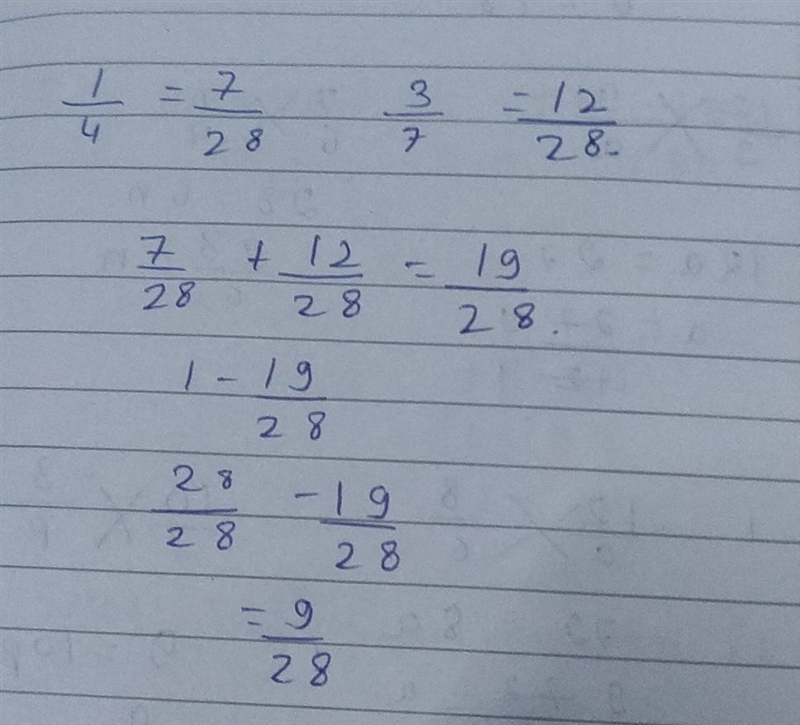 1/4 = 7/28 3/7 = 12/28
7/28 + 12/28 = 19/28.
1 - 19/28
28/28 - 19/28
= 9/28